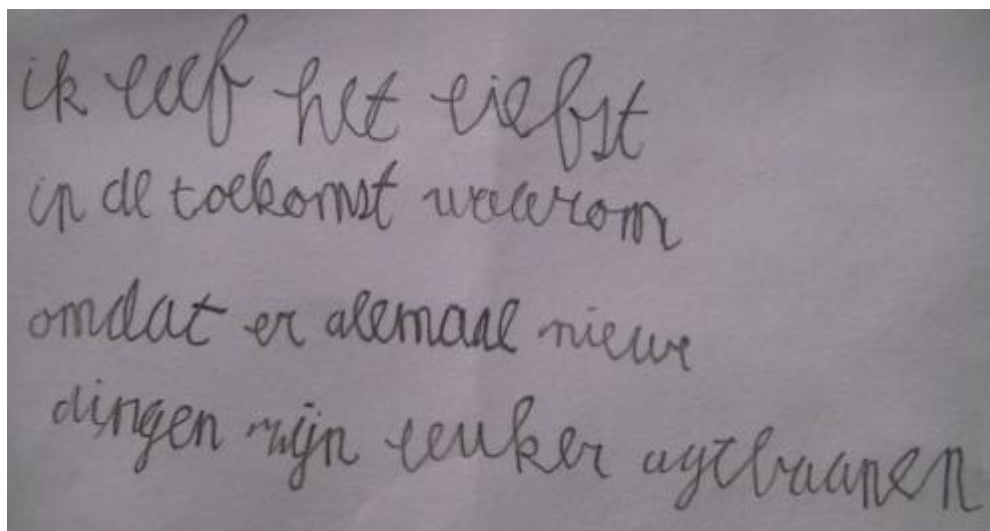 ik leef het liefst
in de toekomst waarom
omdat er alemaal nieuwe
dingen zijn leuker